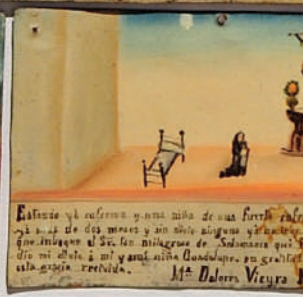 Estando yó enferma y una niña de una fuerte enfe
yá más de dos meses y sin alivio ninguno yá
que invoque al Sr. tan milagroso de Salamanca que
dio mi alivio á mi y a mi niña Guadalupe. en gratit
esta gracia recivida. Mª Dolores Vieyra